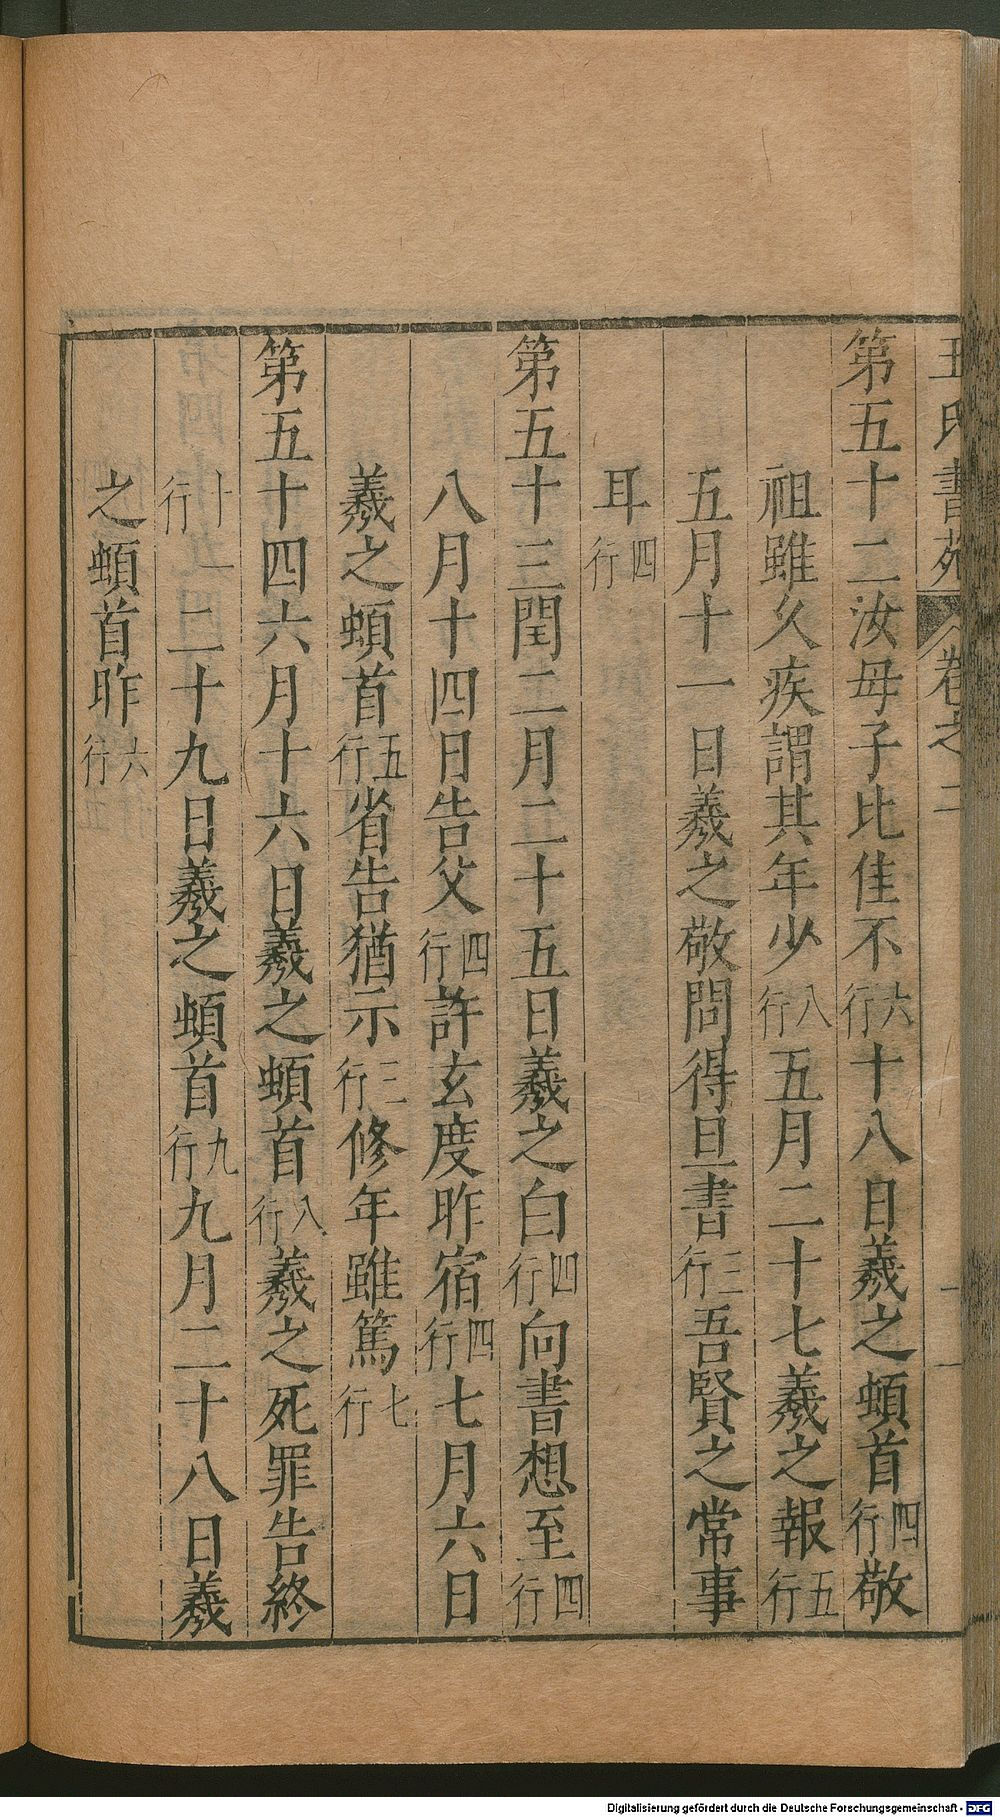 王氏書苑 卷之二
第五十二汝母子比佳不六行十八日羲之頓首四行敬
祖雖久疾謂其年少八行五月二十七羲之報五行
五月十一日羲之敬問得旦書三行吾賢之常事
耳四行
第五十三閏二月二十五日羲之白四行向書想至四行
八月十四日告父四行許玄度昨宿四行七月六日
羲之頓首五行省告猶示三行修年雖篤七行
第五十四六月十六日羲之頓首八行羲之死罪告終
十一行二十九日羲之頓首九行九月二十八日羲
之頓首昨六行
Digitalisierung gefördert durch die Deutsche Forschungsgemeinschaft - DFG